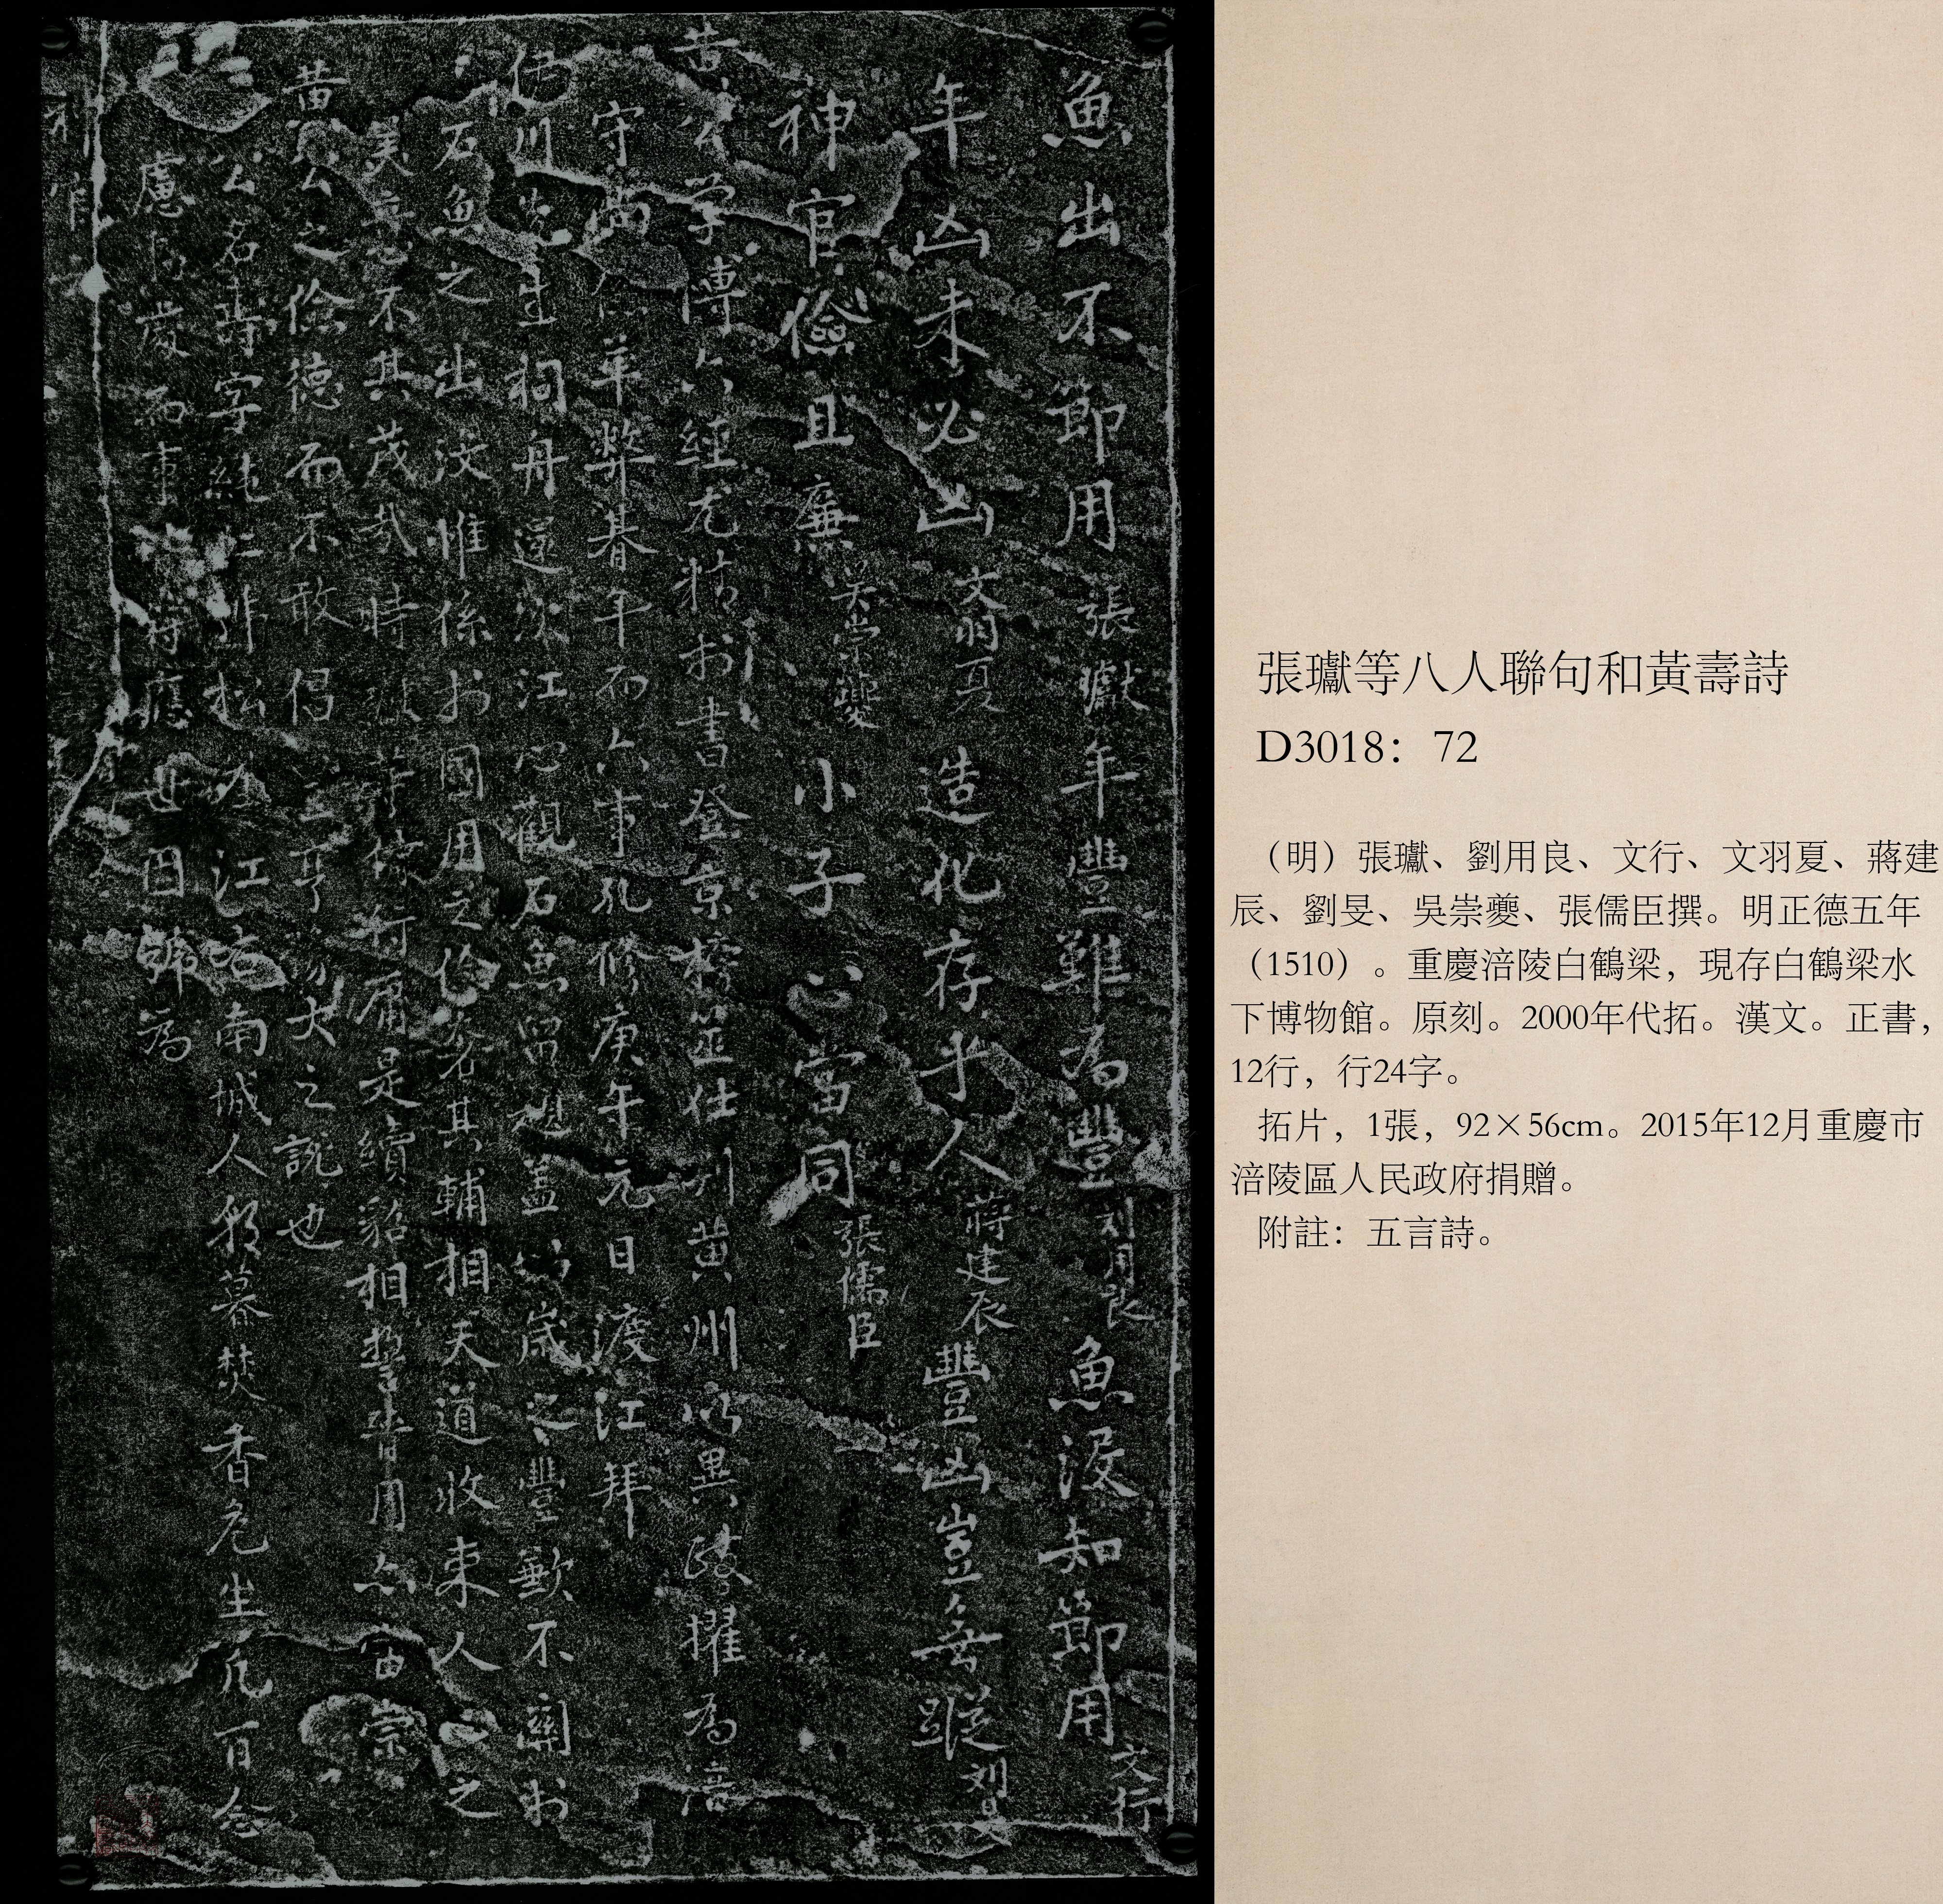 魚出不節用 張瓛 年豐難為豐 刘用良 魚没知節用 文行
年凶未必凶 文羽夏 造化存乎人 蒋建辰 豐凶豈無蹤 刘旻
神官儉且廉 吴崇夔 小子心當同 張儒臣
黄公学博六經尤精於書登京榜筮仕判黄州以異陵擢為涪
守尚儉革弊朞年而六事孔修庚午元日渡江拜
伊川先生祠舟還次江心觀石魚留題盖以歲之豐歉不關於
石魚之出没惟係於國用之儉奢其輔相天道收束人心之
美意不其茂哉時 行庸是續貂相誓用亦宗
黄公之儉德而不敢倡豊亨豫大之説也
公名壽字純仁號松坡江右南城人朝暮焚香危坐凢百念
慮有發而事神將應世因號為
神官
張瓛等八人聯句和黃壽詩
D3018：72
（明）張瓛、劉用良、文行、文羽夏、蔣建
辰、劉旻、吳崇夔、張儒臣撰。明正德五年
（1510）。重慶涪陵白鶴梁，現存白鶴梁水
下博物館。原刻。2000年代拓。漢文。正書，
12行，行24字。
拓片，1張，92×56cm。2015年12月重慶市
涪陵區人民政府捐贈。
附註：五言詩。